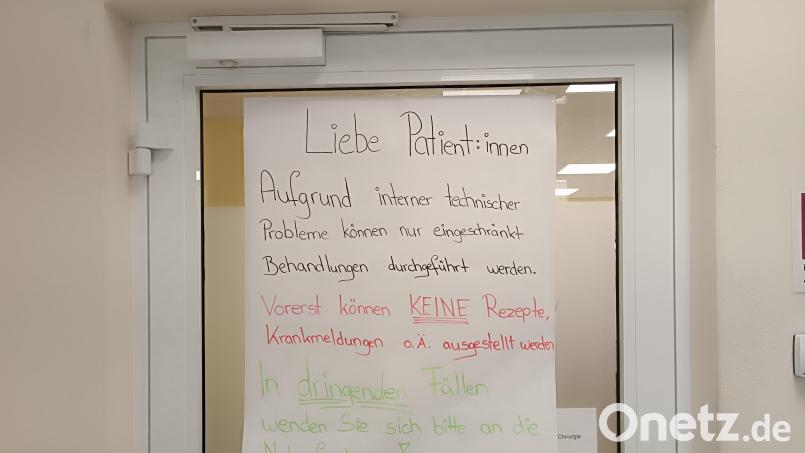 Liebe Patient:innen
Aufgrund interner technischer
Probleme können nur eingeschränkt
Behandlungen durchgeführt werden.
Vorerst können KEINE Rezepte,
Krankmeldungen o.Ä. ausgestellt werden
In dringenden Fällen
wenden Sie sich bitte an die
Chirurgie
Onetz.de